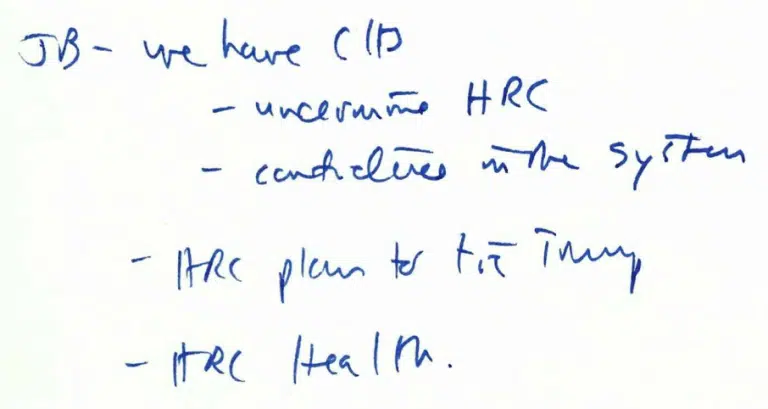 JB - we have CID
- undermine HRC
- confidence in the system
- HRC plan to tie Trump
- HRC Health.